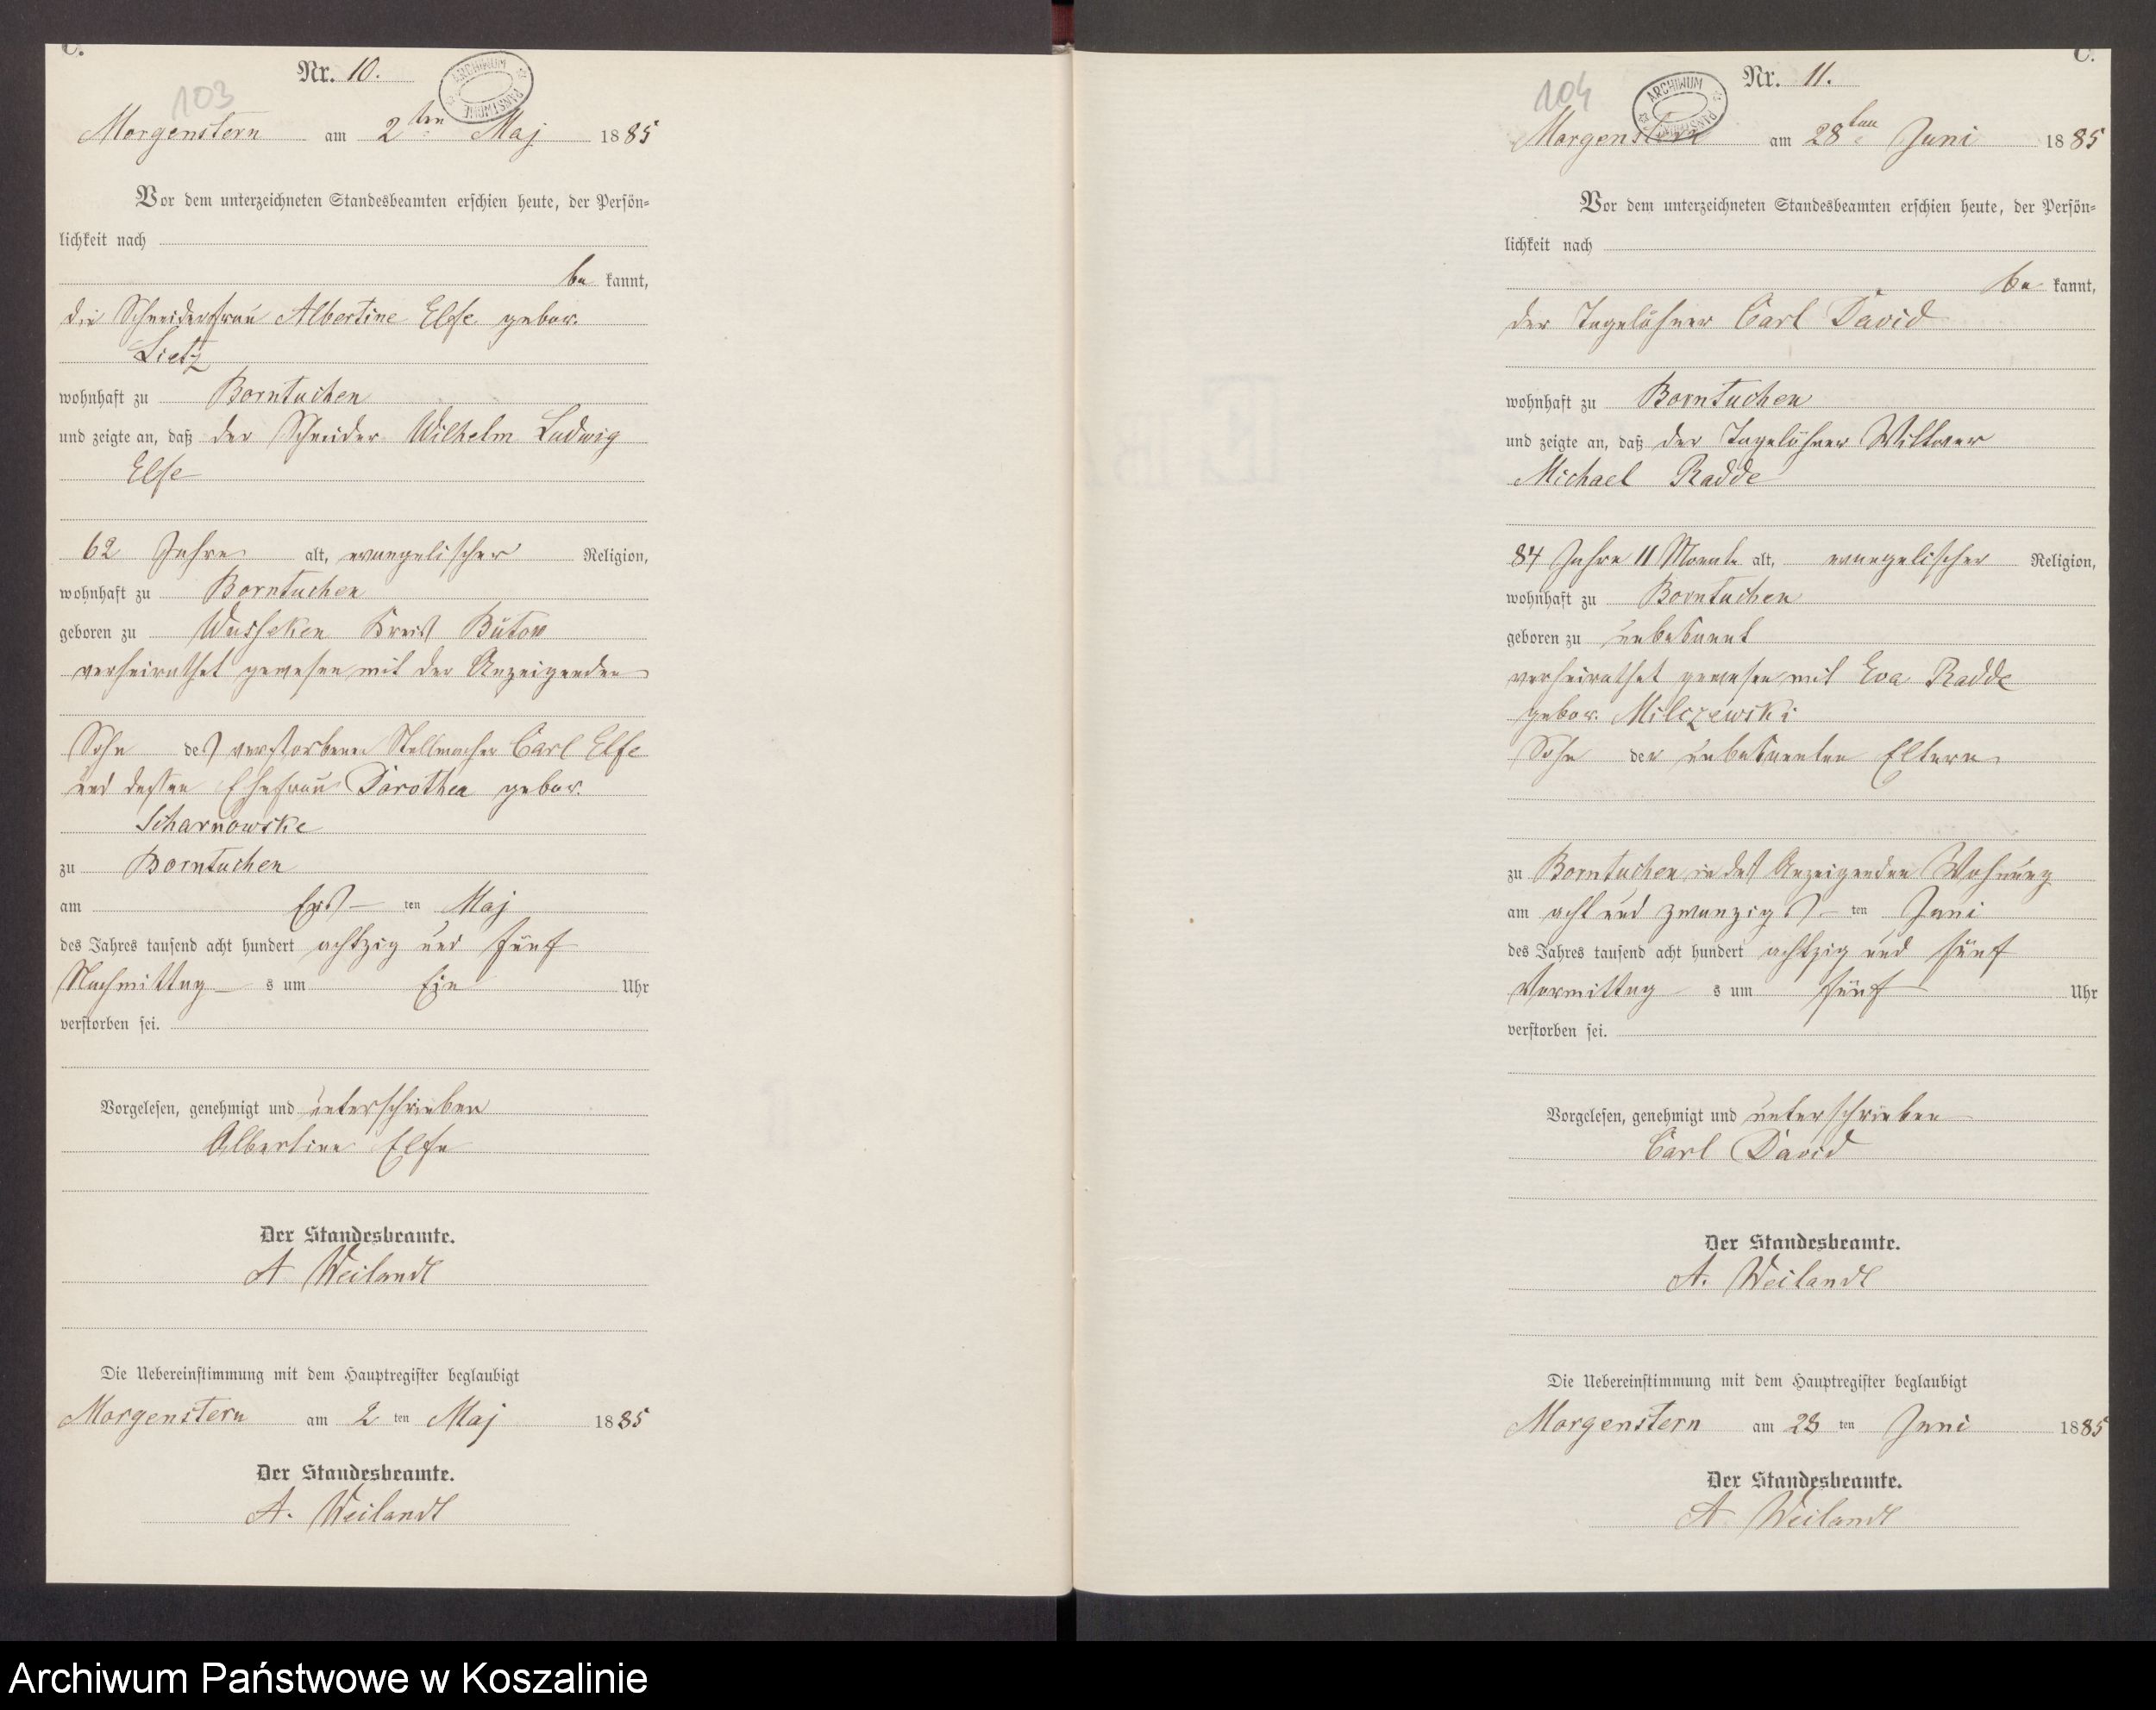 C.
Nr. 10.
103
ARCHIWUM PAŃSTWOWE
Morgenstern am 2ten Maj 1885
Vor dem unterzeichneten Standesbeamten erschien heute, der Persön-
lichkeit nach
be kannt,
die Schneiderfrau Albertine Elfe gebor.
Lietz
wohnhaft zu Borntuchen
und zeigte an, daß der Schneider Wilhelm Ludwig
Elfe
62 Jahre alt, evangelischer Religion,
wohnhaft zu Borntuchen
geboren zu Wusseken Kreis Bütow
verheirathet gewesen mit der Anzeigenden
Sohn des verstorbenen Stellmacher Carl Elfe
und dessen Ehefrau Dorothea gebor.
Scharnowske
zu Borntuchen
am Ers ten Maj
des Jahres tausend acht hundert achtzig und fünf
Nachmittag s um Ein Uhr
verstorben sei.
Vorgelesen, genehmigt und unterschrieben
Albertine Elfe
Der Standesbeamte.
A Weilandt
Die Uebereinstimmung mit dem Hauptregister beglaubigt
Morgenstern am 2 ten Maj 1885
Der Standesbeamte.
A. Weilandt
C.
Nr. 11.
104
ARCHIWUM PAŃSTWOWE
Morgenstern am 28ten Juni 1885
Vor dem unterzeichneten Standesbeamten erschien heute, der Persön-
lichkeit nach
be kannt,
der Tagelöhner Carl David
wohnhaft zu Borntuchen
und zeigte an, daß der Tagelöhner Wittwer
Michael Radde
84 Jahre 11 Monate alt, evangelischer Religion,
wohnhaft zu Borntuchen
geboren zu unbekannt
verheirathet gewesen mit Eva Radde
gebor. Milczewski
Sohn der unbekannten Eltern
zu Borntuchen in des Anzeigenden Wohnung
am acht und zwanzigs ten Juni
des Jahres tausend acht hundert achtzig und fünf
Vormittag s um fünf Uhr
verstorben sei.
Vorgelesen, genehmigt und unterschrieben
Carl David
Der Standesbeamte.
A. Weilandt
Die Uebereinstimmung mit dem Hauptregister beglaubigt
Morgenstern am 28 ten Juni 1885
Der Standesbeamte.
A Weilandt
Archiwum Państwowe w Koszalinie